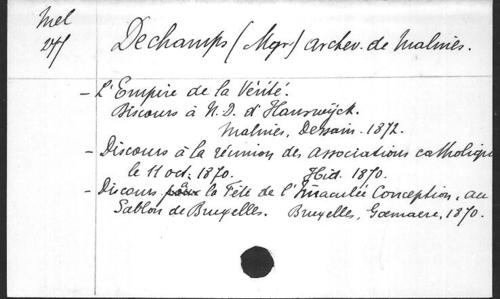 Mel
27/
Dechamps (Mgr) archev. de Malines.
- L'Empire de la Vérité.
Discours à N. D. d'Hanswÿck.
Malines, Dessain. 1872.
- Discours à la réunion des associations catholiqu
le 11 oct. 1870. Ibid. 1870.
- Discours à la Fête de l'Immaculée Conception, au
Sablon de Bruxelles. Bruxelles, Goemaere, 1870.